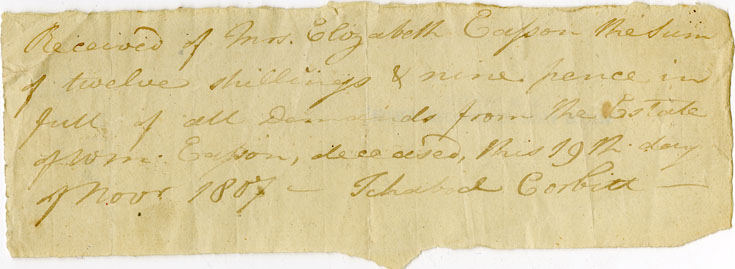 Received of Mrs. Elizabeth Eaſson the Sum
of twelve shillings & nine pence in
full of all Demands from the Estate
of Wm. Eaſson, deceased, this 19th day
of Novr 1807 — Ichabod Corbitt —